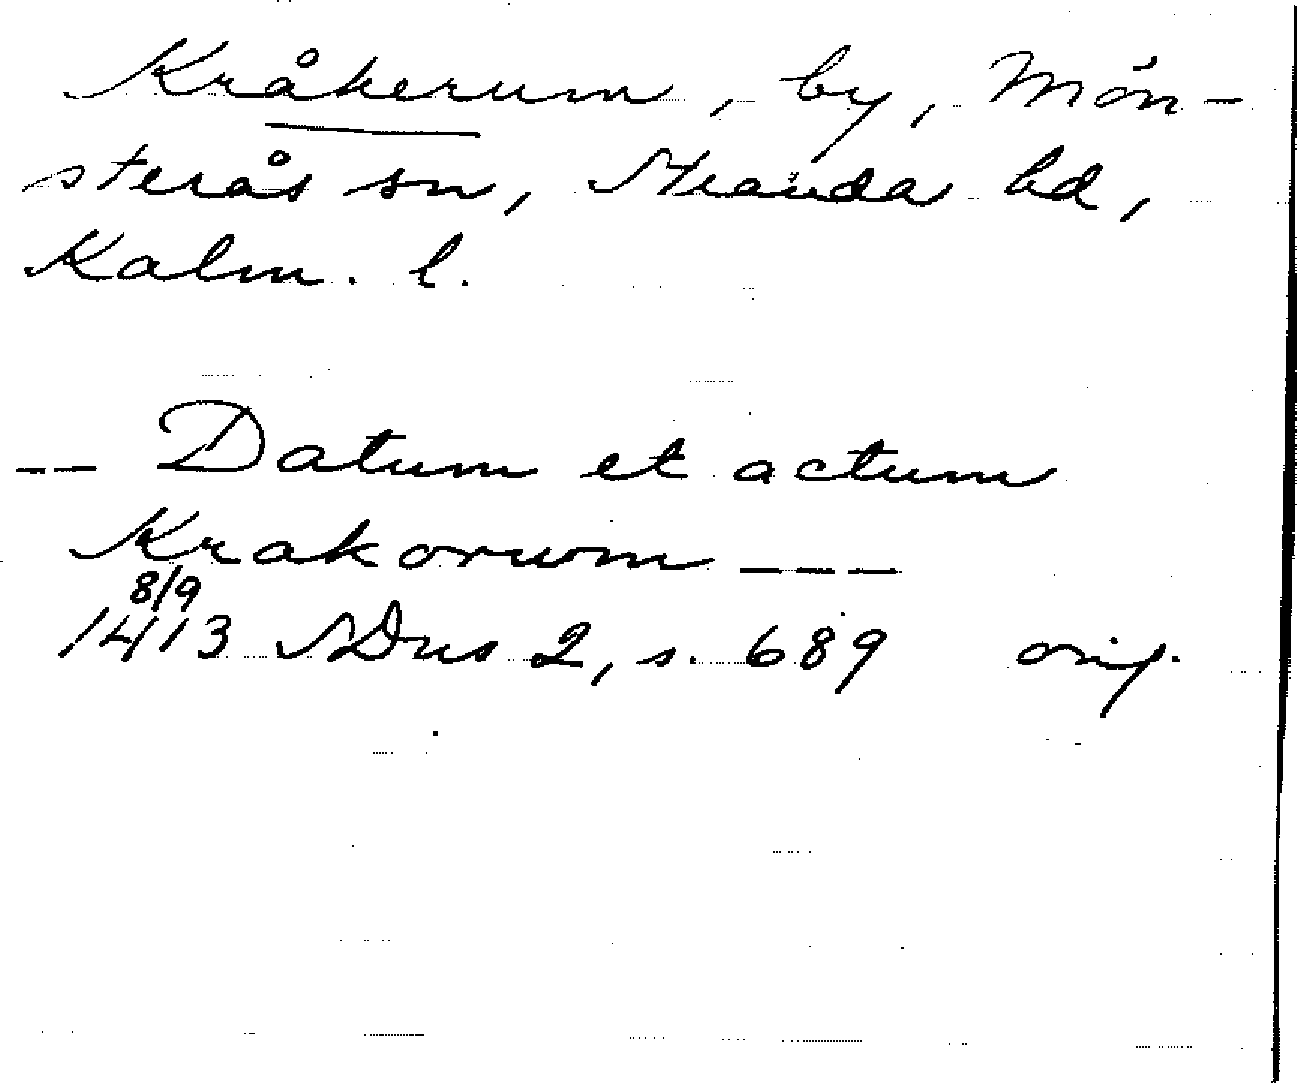 Kråkerum, by, Mön-
sterås sn, Stranda hd,
Kalm. l.
-- Datum et actum
Krakorum ---
8/9
1413 SDns 2, s. 689 orig.